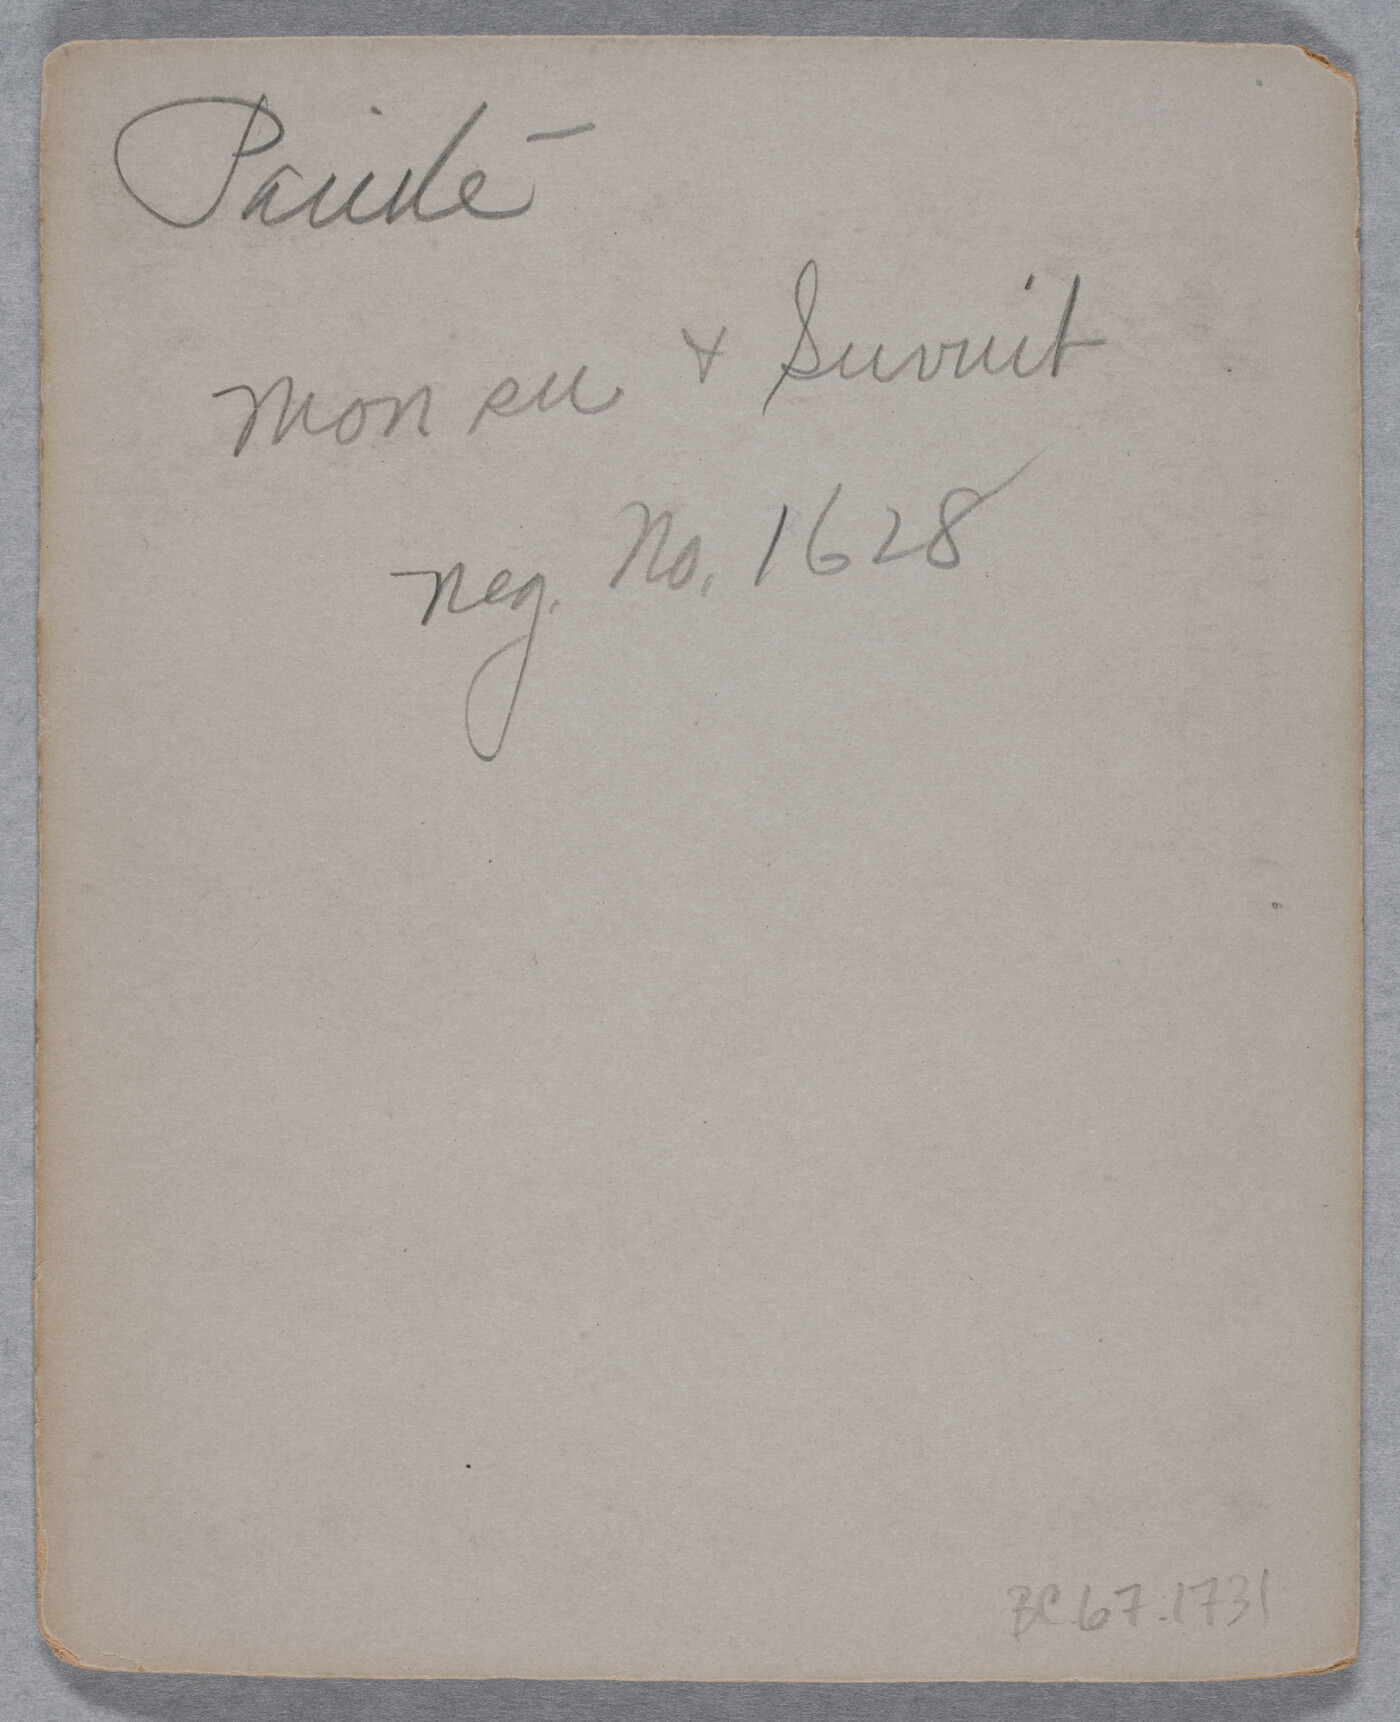 Paiute
Mon su & Suvuit
Neg. No. 1628
BC.67.1731